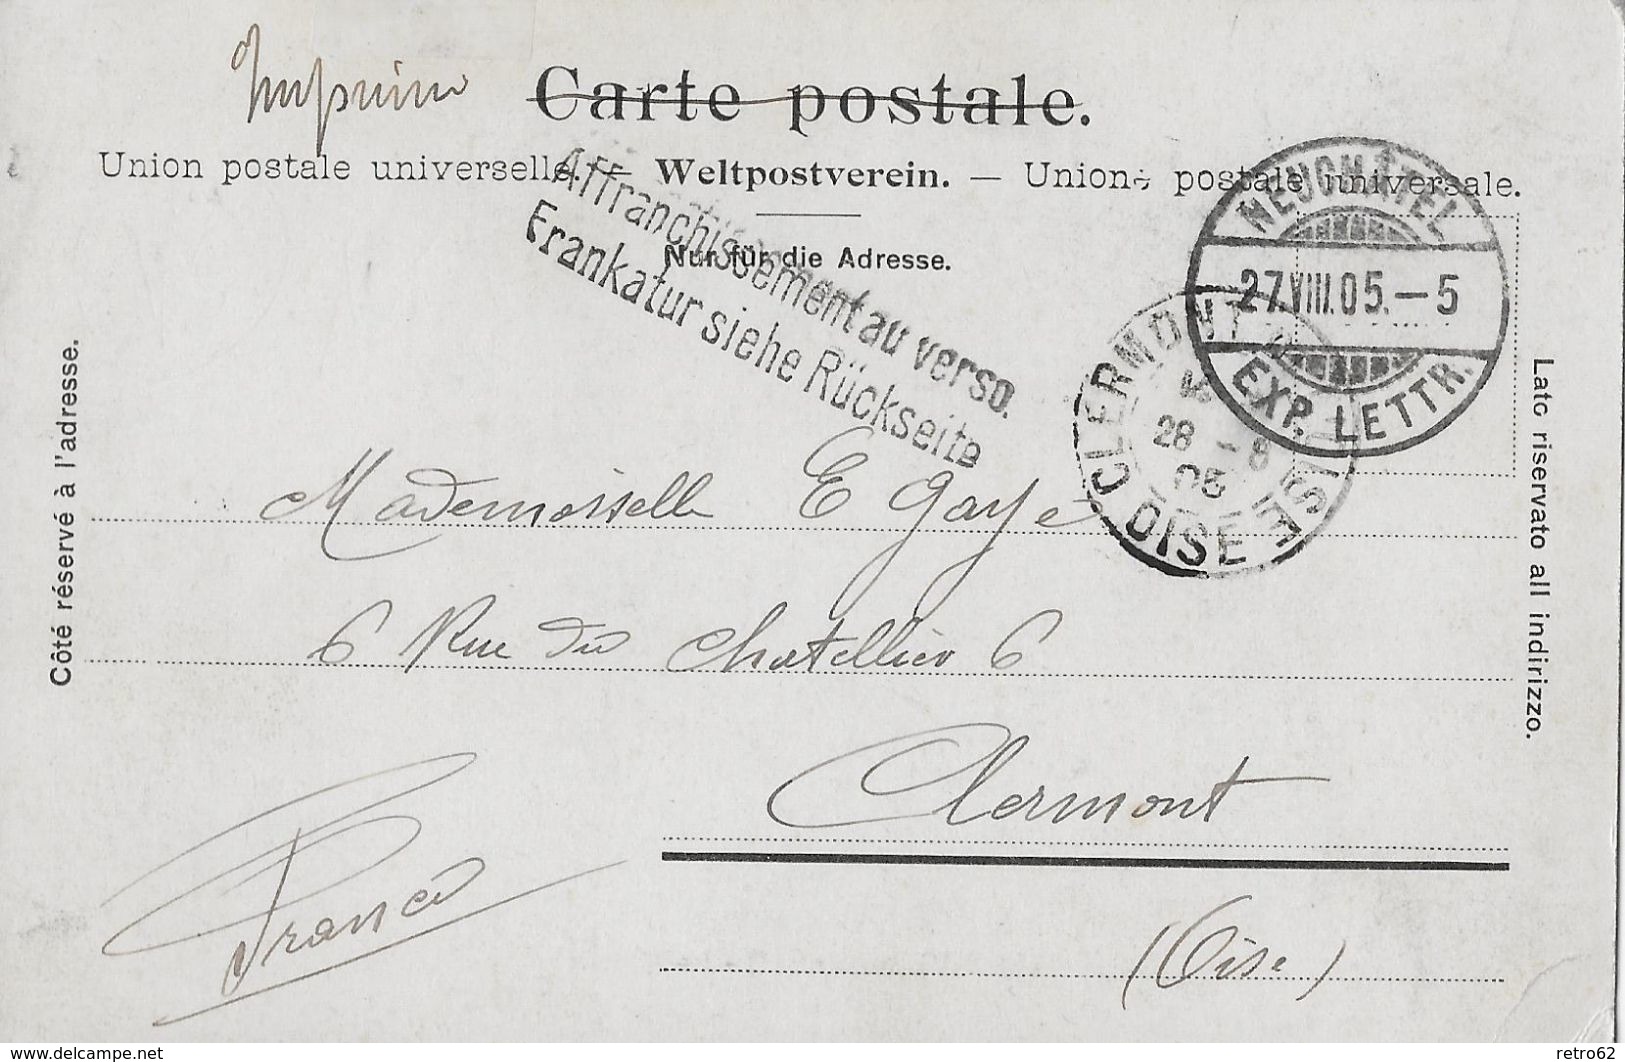 Imprimé
Carte postale.
Union postale universelle. — Weltpostverein. — Unione postale universale.
Nur für die Adresse.
Affranchissement au verso.
Frankatur siehe Rückseite
NEUCHÂTEL
27.VIII.05.–5
EXP. LETTR.
CLERMONT
28 - 8
05
OISE
Côté réservé à l'adresse.
Lato riservato all indirizzo.
Mademoiselle E Gaye
6 Rue du Chatellier 6
Clermont
(Oise)
France
www.delcampe.net
retro62